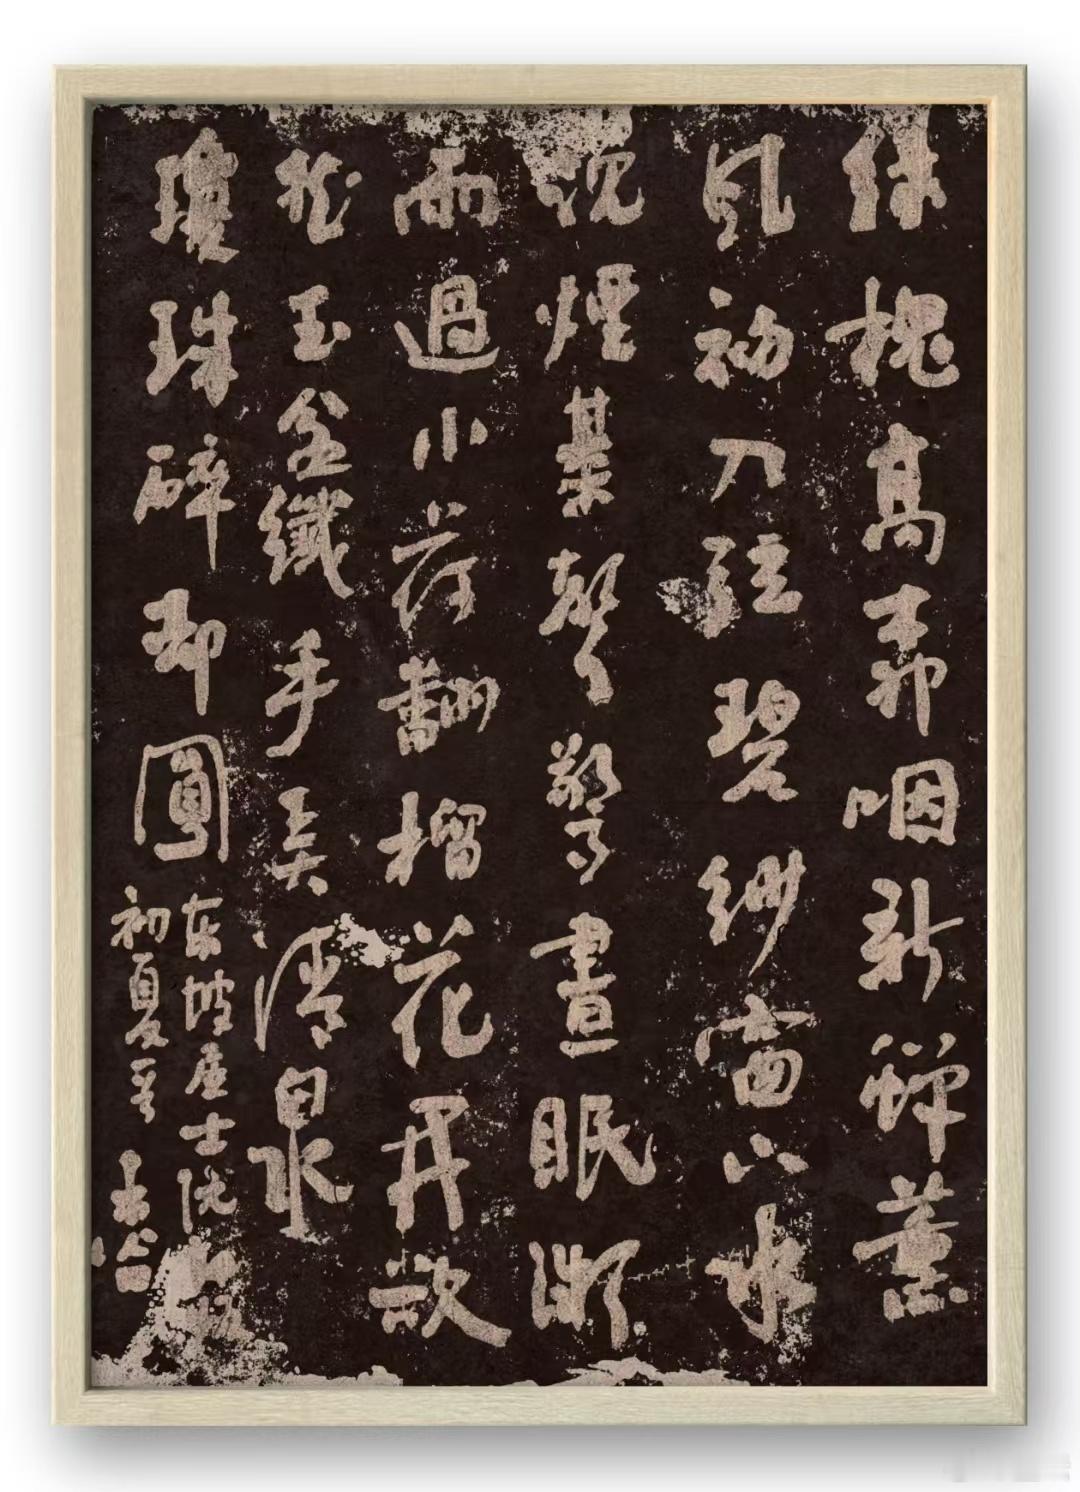 緑槐高柳咽新蟬薰
風初入弦碧紗窗下水
沈煙棊聲驚晝眠微
雨過小荷翻榴花開欲
然玉盆纖手弄清泉
瓊珠碎却圓
东坡居士阮郎歸
初夏